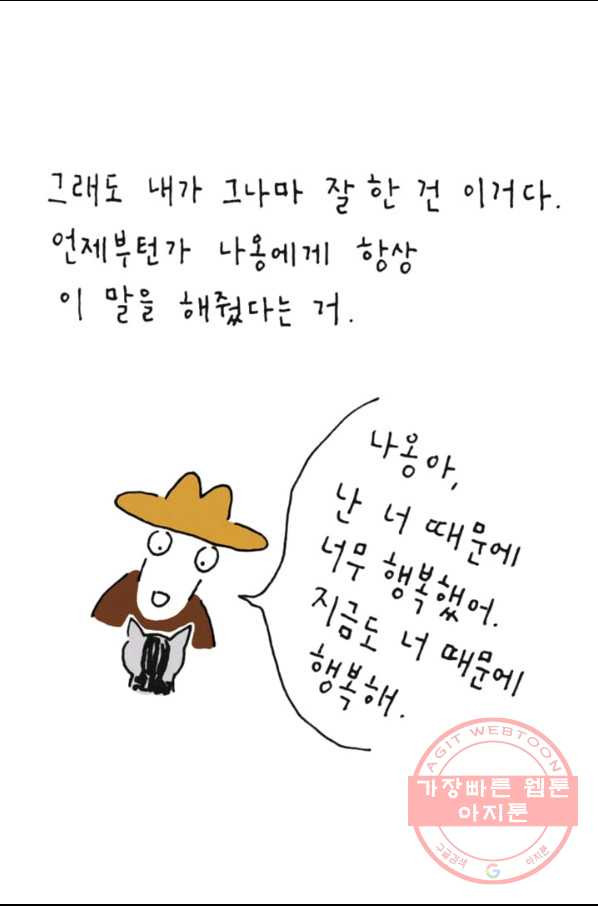 그래도 내가 그나마 잘한 건 이거다.
언제부턴가 나옹에게 항상
이 말을 해줬다는 거.
나옹아,
난 너 때문에
너무 행복했어.
지금도 너 때문에
행복해.
AGIT WEBTOON
가장빠른 웹툰
아지툰
구글검색 G 아지툰